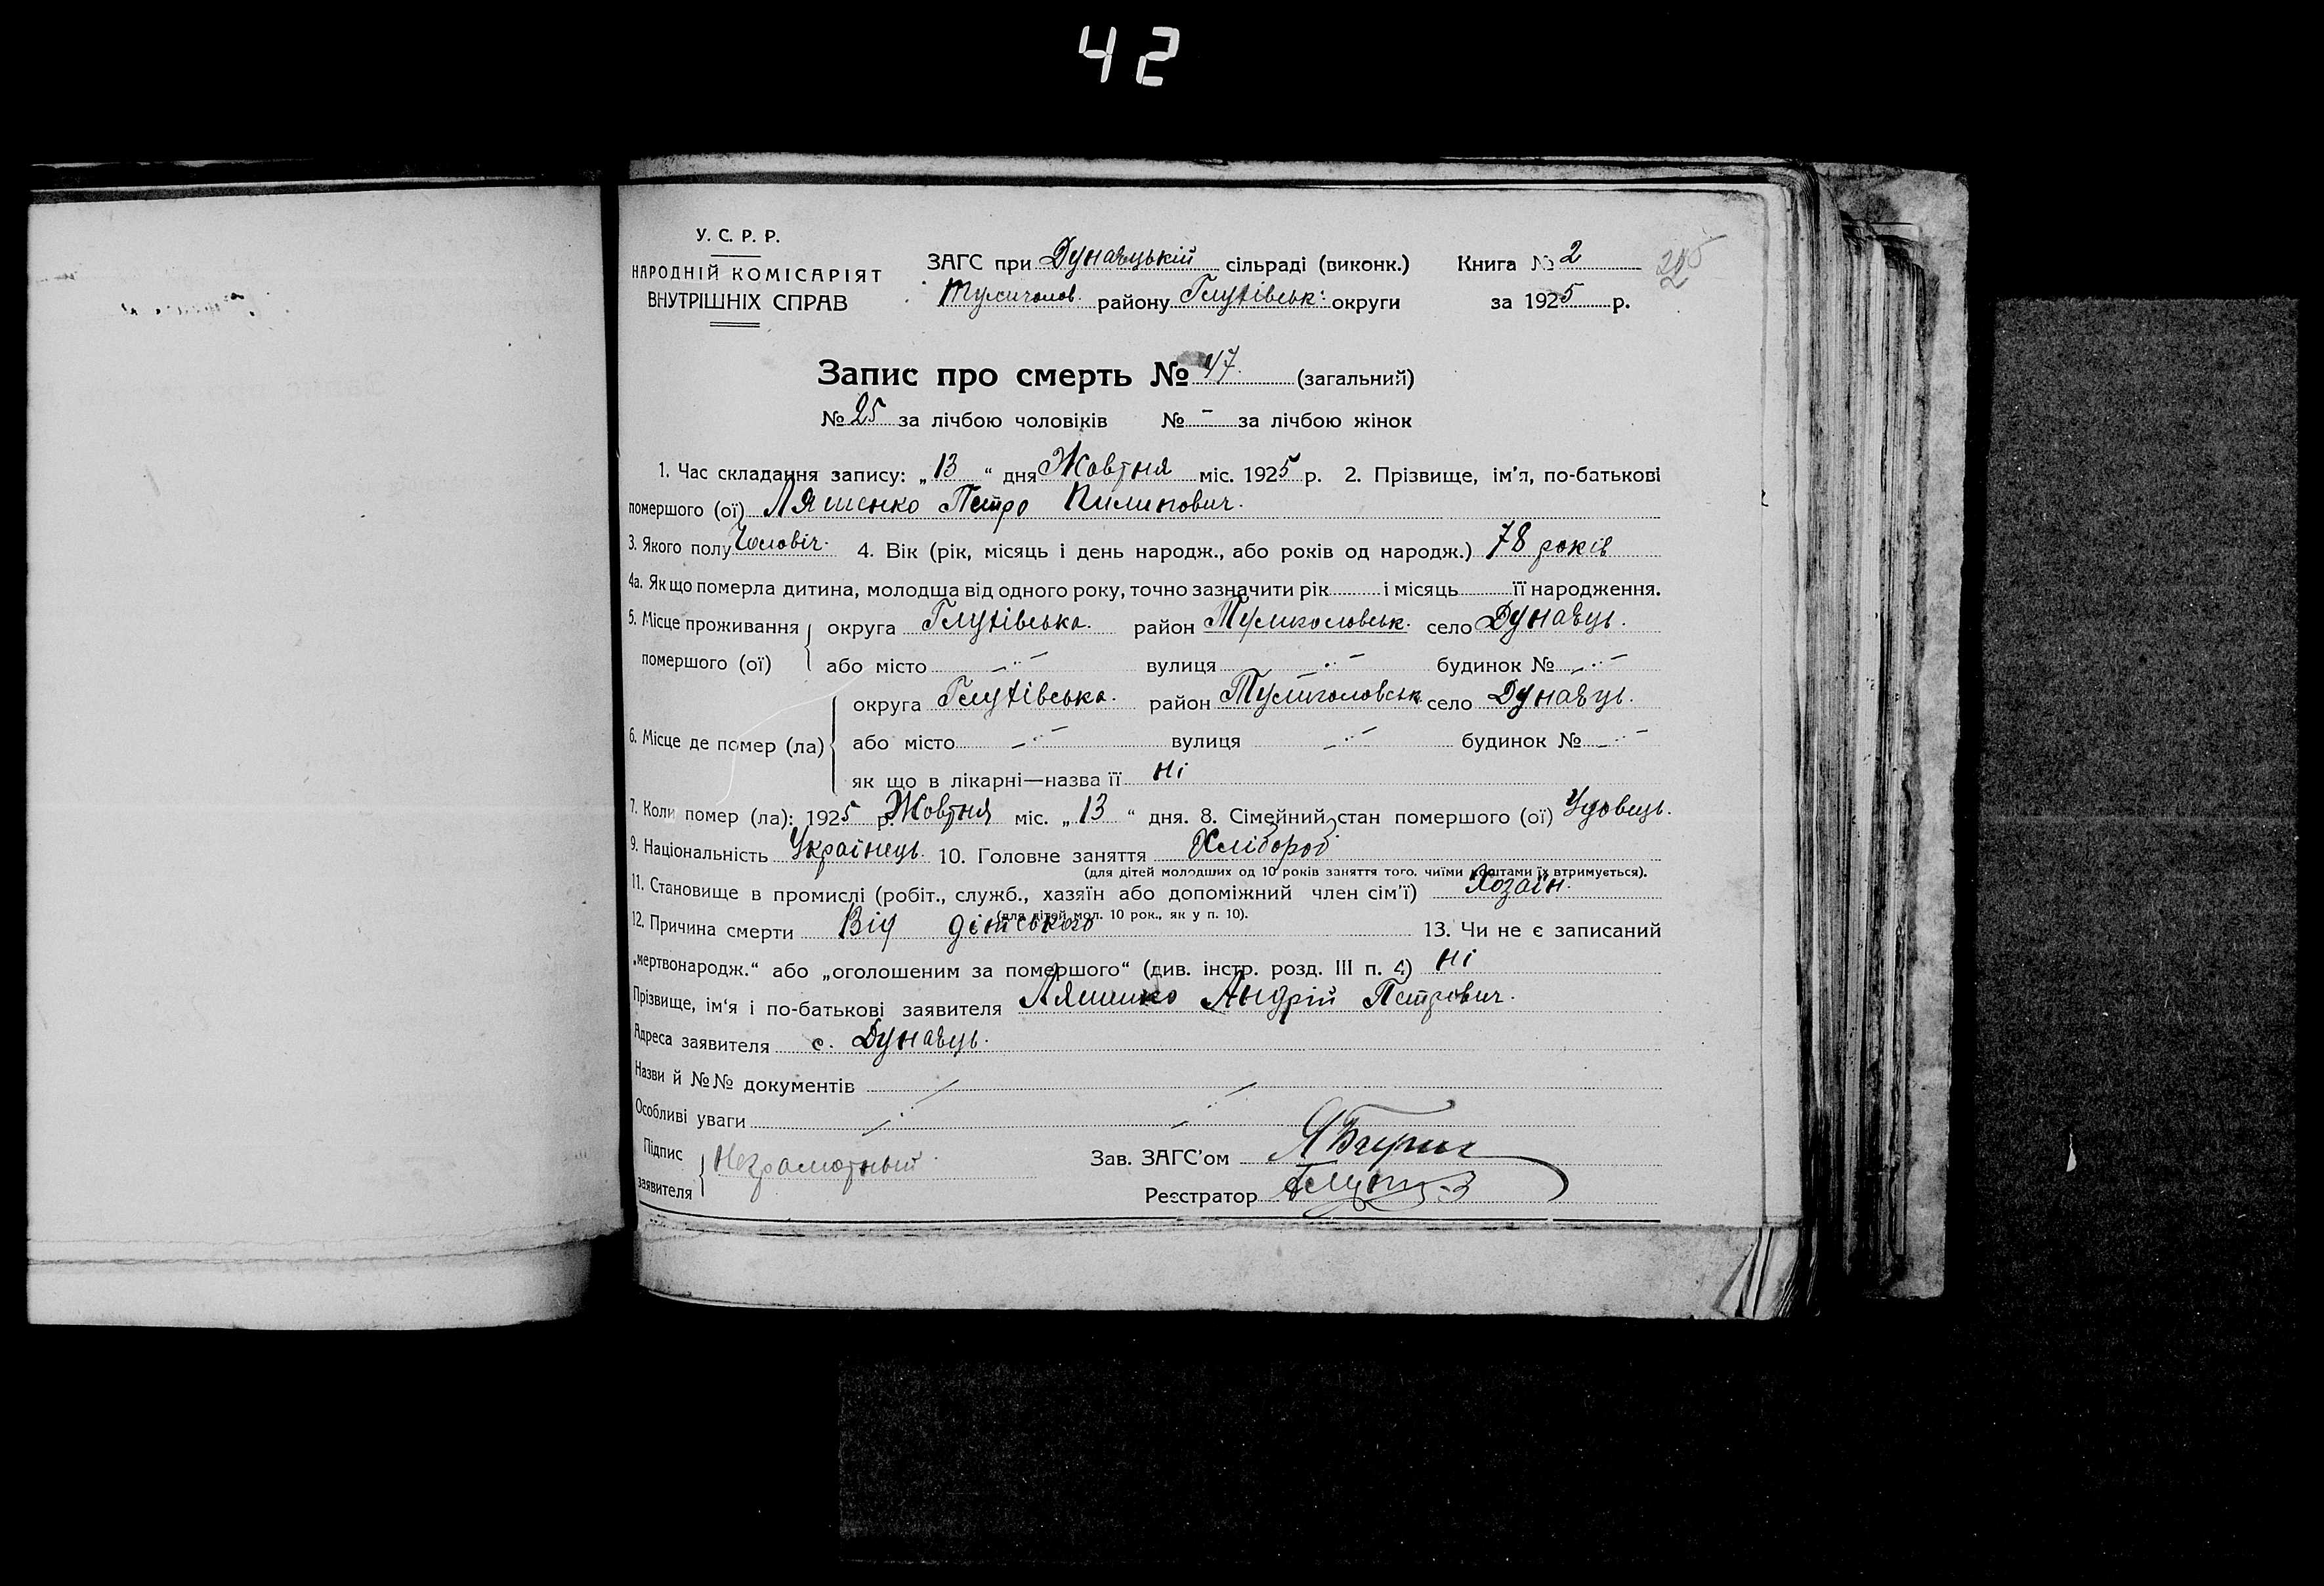 42
У. С. Р. Р.
НАРОДНІЙ КОМІСАРІЯТ
ВНУТРІШНІХ СПРАВ
ЗАГС при Дунаяцькій сільраді (виконк.)
Тулиголов. району Глухівськ: округи
Книга № 2
за 1925 р.
225
Запис про смерть № 47. (загальний)
№ 25 за лічбою чоловіків № - за лічбою жінок
1. Час складання запису: „ 13 “ дня Жовтня міс. 1925 р. 2. Прізвище, ім'я, по-батькові
помершого (ої) Ляшенко Петро Пилипович.
3. Якого полу Чоловіч. 4. Вік (рік, місяць і день народж., або років од народж.) 78 років
4а. Як що померла дитина, молодша від одного року, точно зазначити рік і місяць її народження.
5. Місце проживання помершого (ої) округа Глухівська. район Тулиголовськ. село Дунаяць.
або місто -"- вулиця -"- будинок № -"-
6. Місце де помер (ла) округа Глухівська. район Тулиголовськ. село Дунаяць.
або місто -"- вулиця -"- будинок № -"-
як що в лікарні—назва її Ні
7. Коли помер (ла): 1925 р. Жовтня міс. „ 13 “ дня. 8. Сімейний стан помершого (ої) Удовець.
9. Національність Українець. 10. Головне заняття Хлібороб
(для дітей молодших од 10 років заняття того, чиїми коштами їх втримується).
11. Становище в промислі (робіт., служб., хазяїн або допоміжний член сім'ї) Хозаїн.
(для дітей мол. 10 рок., як у п. 10).
12. Причина смерти Від 13. Чи не є записаний
„мертвонародж.“ або „оголошеним за помершого“ (див. інстр. розд. III п. 4) Ні
Прізвище, ім'я і по-батькові заявителя Ляшенко Андрій Петрович.
Адреса заявителя с. Дунаяць.
Назви й №№ документів
Особливі уваги
Підпис заявителя Неграмотный
Зав. ЗАГС'ом
Реєстратор